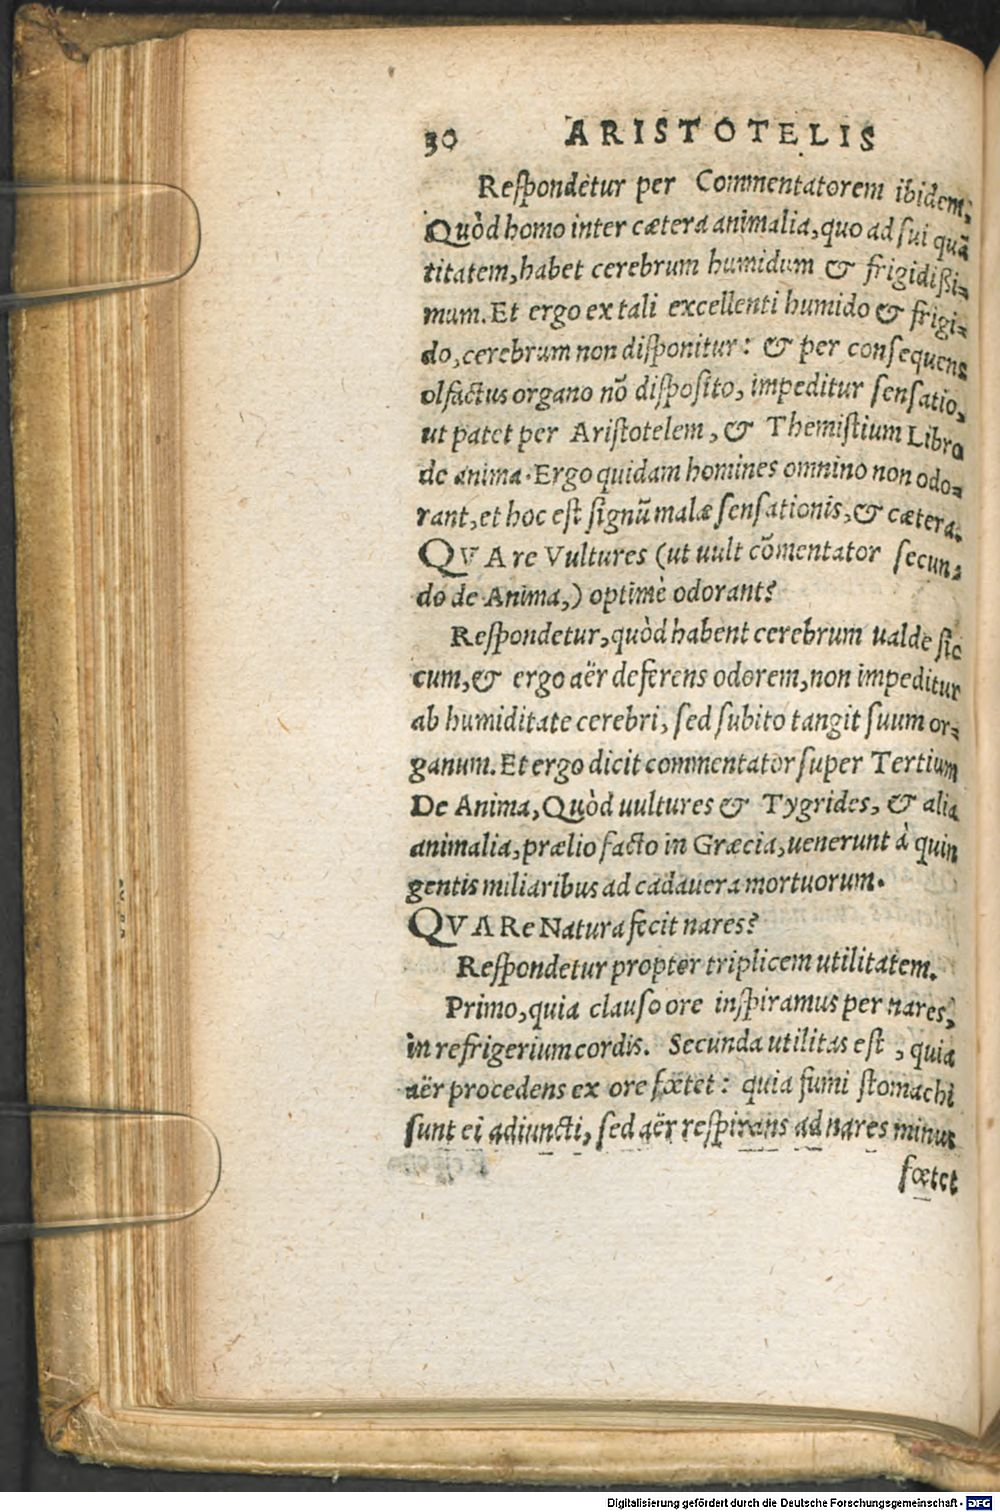 30 ARISTOTELIS
Respondetur per Commentatorem ibidem,
Quòd homo inter cætera animalia, quo ad sui quã
titatem, habet cerebrum humidum & frigidissi-
mum. Et ergo ex tali excellenti humido & frigi-
do, cerebrum non disponitur: & per consequens
olfactus organo nõ disposito, impeditur sensatio,
ut patet per Aristotelem, & Themistium Libro
de anima. Ergo quidam homines omnino non odo-
rant, et hoc est signũ malæ sensationis, & cætera.
QVARe Vultures (ut uult cõmentator secun-
do de Anima,) optimè odorant?
Respondetur, quòd habent cerebrum ualde sic
cum, & ergo aër deferens odorem, non impeditur
ab humiditate cerebri, sed subito tangit suum or-
ganum. Et ergo dicit commentator super Tertium
De Anima, Quòd uultures & Tygrides, & alia
animalia, prælio facto in Græcia, uenerunt à quin
gentis miliaribus ad cadauera mortuorum.
QVARe Natura fecit nares?
Respondetur propter triplicem utilitatem.
Primo, quia clauso ore inspiramus per nares,
in refrigerium cordis. Secunda utilitas est, quia
aër procedens ex ore fœtet: quia fumi stomachi
sunt ei adiuncti, sed aër respirans ad nares minus
fœtet
Digitalisierung gefördert durch die Deutsche Forschungsgemeinschaft - DFG